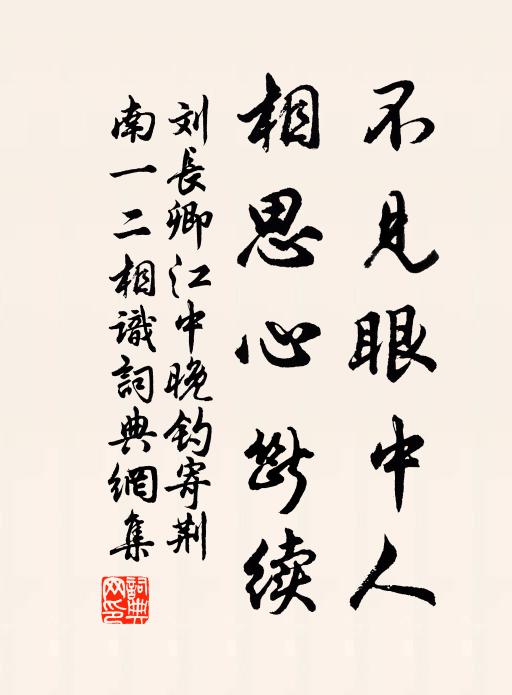 不见眼中人
相思心断续
刘長卿江中晚钓寄荆
南一二相識詞典網集
詞典
网印